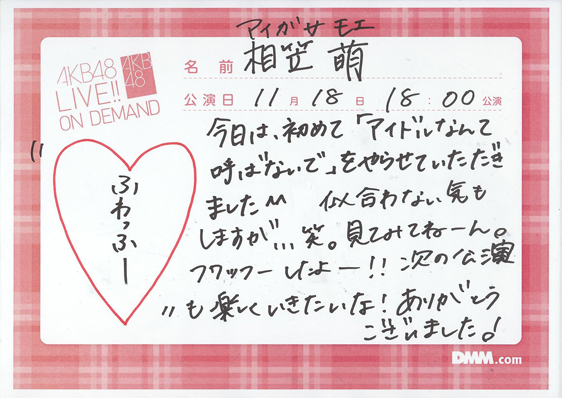 アイガサ モエ
AKB48
LIVE!!
ON DEMAND
AKB
48
名前 相笠 萌
公演日 11月18日 18:00公演
今日は、初めて「アイドルなんて
呼ばないで」をやらせていただき
ました^^ 似合わない気も
しますが、、、笑。見てみてねーん。
フワッフーしたよー!! 次の公演
も楽しくいきたいな!ありがとう
ございました!
"
ふわっふー
"
DMM.com